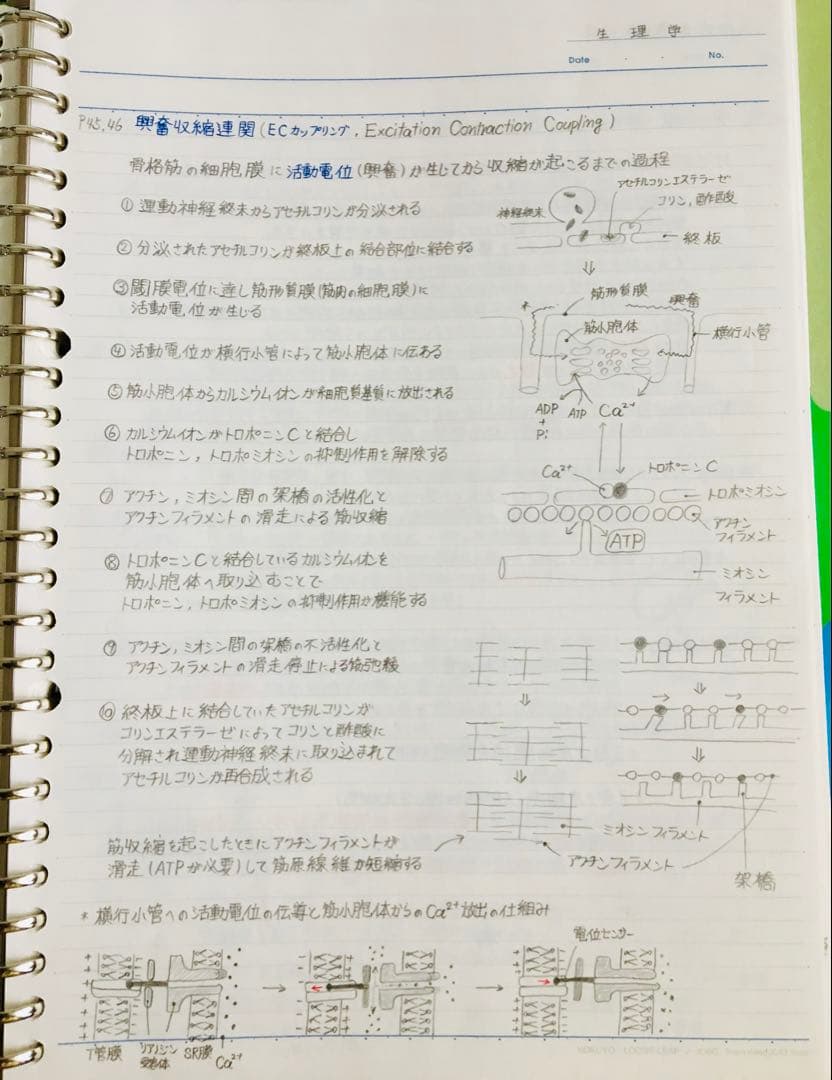 生理学
Date ・ ・ No.
P45,46 興奮収縮連関(ECカップリング, Excitation Contraction Coupling)
骨格筋の細胞膜に活動電位(興奮)が生じてから収縮が起こるまでの過程
①運動神経終末からアセチルコリンが分泌される
②分泌されたアセチルコリンが終板上の結合部位に結合する
③閾膜電位に達し筋形質膜(筋肉の細胞膜)に
活動電位が生じる
④活動電位が横行小管によって筋小胞体に伝わる
⑤筋小胞体からカルシウムイオンが細胞質基質に放出される
⑥カルシウムイオンがトロポニンCと結合し
トロポニン,トロポミオシンの抑制作用を解除する
⑦アクチン,ミオシン間の架橋の活性化と
アクチンフィラメントの滑走による筋収縮
⑧トロポニンCと結合しているカルシウムイオンを
筋小胞体へ取り込むことで
トロポニン,トロポミオシンの抑制作用が機能する
⑨アクチン,ミオシン間の架橋の不活性化と
アクチンフィラメントの滑走停止による筋弛緩
⑩終板上に結合していたアセチルコリンが
コリンエステラーゼによってコリンと酢酸に
分解され運動神経終末に取り込まれて
アセチルコリンが再合成される
筋収縮を起こしたときにアクチンフィラメントが
滑走(ATPが必要)して筋原線維が短縮する
アセチルコリンエステラーゼ
コリン,酢酸
神経終末
終板
*
筋形質膜
興奮
筋小胞体
横行小管
ADP
+
Pi
ATP
Ca²⁺
Ca²⁺
トロポニンC
トロポミオシン
アクチン
フィラメント
ATP
ミオシン
フィラメント
ミオシンフィラメント
アクチンフィラメント
架橋
* 横行小管への活動電位の伝導と筋小胞体からのCa²⁺放出の仕組み
電位センサー
T管膜
リアノジン
受容体
SR膜
Ca²⁺